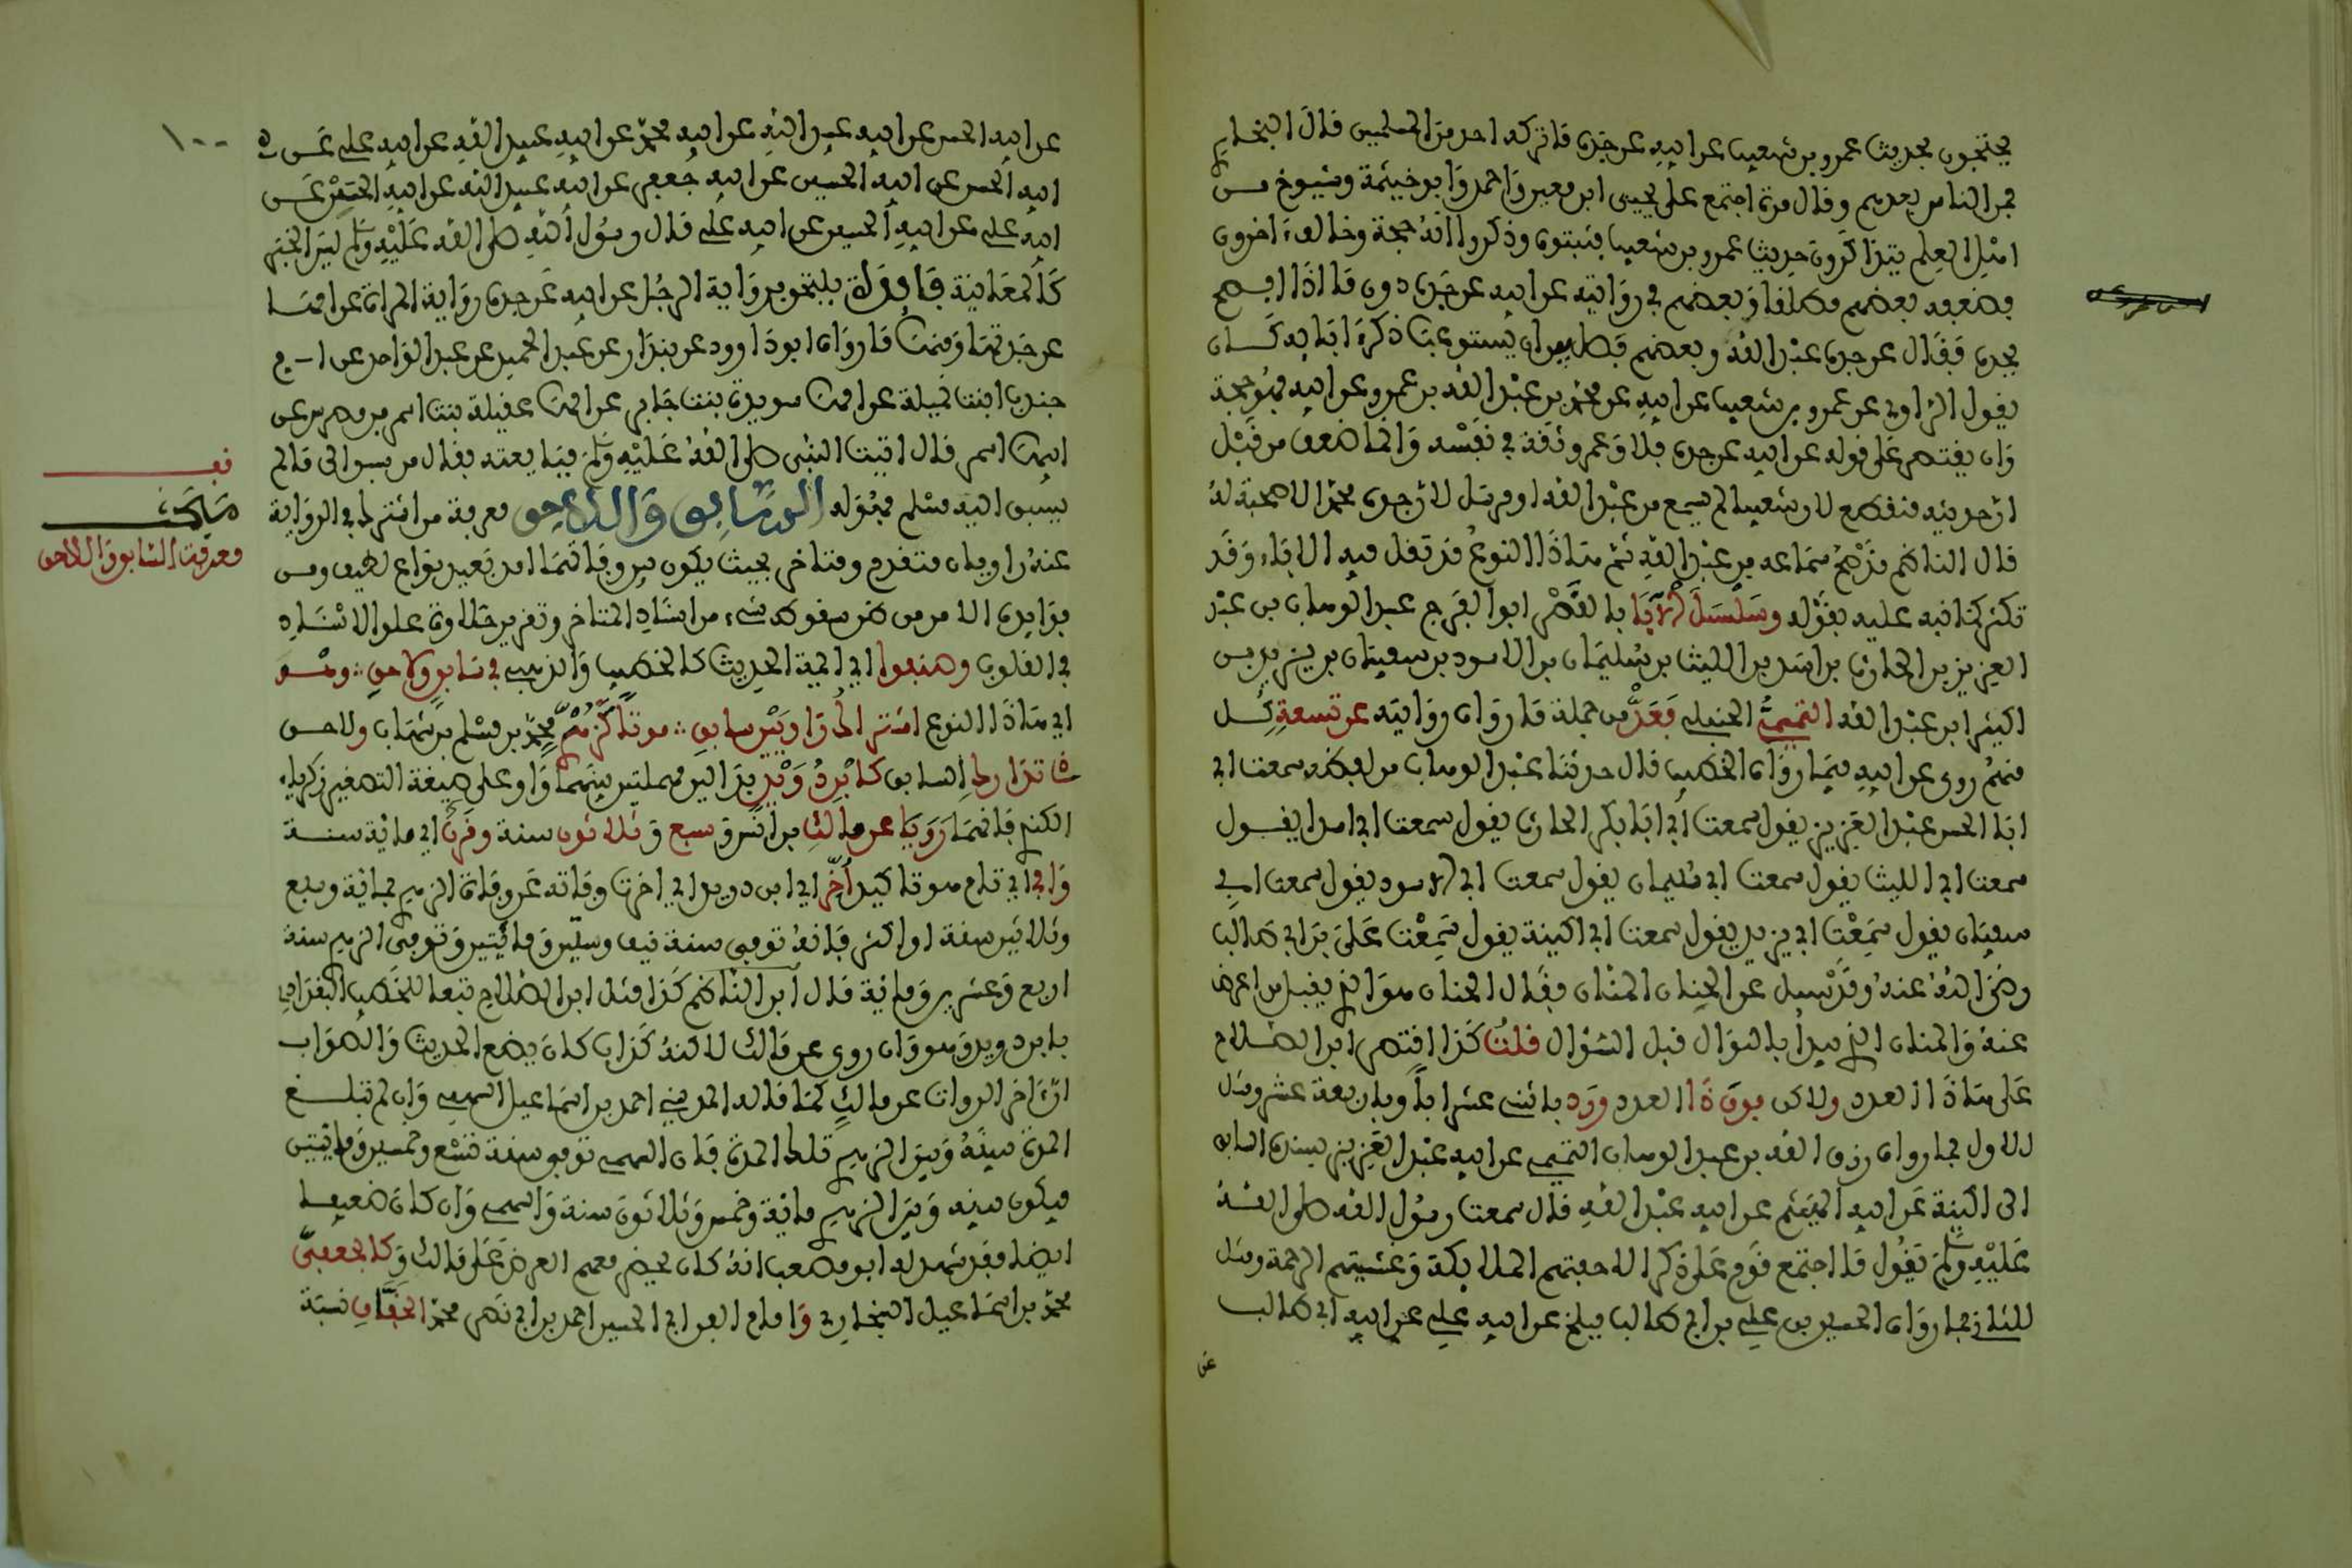 يحتجون بحديث عمرو بن شعيب عن ابيه عن جده ما تركه احد من المسلمين قال البخاري
فمن الناس بعدهم وقال مرة اجتمع على يحيى ابن معين واحمد وابو خيثمة وشيوخ من
اهل العلم يتذاكرون حديث عمرو بن شعيب فثبتوه وذكروا انه حجة وخالف ءاخرون
فضعفه بعضهم مطلقا وبعضهم في روايته عن ابيه عن جده دون ما اذا افصح
بجده فقال عن جده عبد الله وبعضهم فصل بين ان يستوعب ذكر ءابايه كان
يقول الراوي عن عمرو بن شعيب عن ابيه عن محمد بن عبد الله بن عمرو عن ابيه فهو حجة
وان يقتصر على قوله عن ابيه عن جده فلا وعمرو ثقة في نفسه وانما ضعف من قبل
ان حديثه منقطع لان شعيبا لم يسمع من عبد الله او مرسل لان جده محمدا لا صحبة له
قال الناظم وقد صح سماعه من عبد الله ثم هاذا النوع قد تقل فيه الاباء وقد
تكثر كما نبه عليه بقوله وسلسل الابا بالتميمي ابو الفرج عبد الوهاب بن عبد
العزيز بن الحارث بن اسد بن الليث بن سليمان بن الاسود بن سفيان بن يزيد بن
اكينة ابن عبد الله التميمي الحنبلي فعد من جملة ما رواه روايته عن تسعة كل
منهم روى عن ابيه فيما رواه الخطيب قال حدثنا عبد الوهاب من لفظه سمعت ابي
ابا الحسن عبد العزيز يقول سمعت ابي ابا بكر الحارث يقول سمعت ابي اسدا يقول
سمعت ابي الليث يقول سمعت ابي سليمان يقول سمعت ابي الاسود يقول سمعت ابي
سفيان يقول سمعت ابي يزيد يقول سمعت ابي اكينة يقول سمعت علي بن ابي طالب
رضي الله عنه وقد سئل عن الحنان المنان فقال الحنان هو الذي يقبل من اعرض
عنه والمنان الذي يبدا بالنوال قبل السؤال قلت كذا اقتصر ابن الصلاح
على هاذا العدد ولاكن فوق ذا العدد ورد باثني عشر ابا وباربعة عشر ومثل
للاول بما رواه رزق الله بن عبد الوهاب التميمي عن ابيه عبد العزيز بسنده السابق
الى اكينة عن ابيه الهيثم عن ابيه عبد الله قال سمعت رسول الله صلى الله
عليه وسلم يقول ما اجتمع قوم على ذكر الا حفتهم الملائكة وغشيتهم الرحمة ومثل
للثاني بما رواه الحسين بن علي بن ابي طالب ببلخ عن ابيه علي عن ابيه ابي طالب
عن
١٠٠
عن ابيه الحسن عن ابيه عبد الله عن ابيه محمد عن ابيه عبيد الله عن ابيه علي عن
ابيه الحسن عن ابيه الحسين عن ابيه جعفر عن ابيه عبيد الله عن ابيه الحسين عن
ابيه علي عن ابيه الحسين عن ابيه علي قال رسول الله صلى الله عليه وسلم ليس الخبر
كالمعاينة فائدة يلتحق برواية الرجل عن ابيه عن جده رواية المراة عن امها
عن جدتها ومنه ما رواه ابو داوود عن بندار عن عبد الحميد عن عبد الواحد عن ام
جنوب ابنت نميلة عن امها سويدة بنت جابر عن امها عقيلة بنت اسمر بن مضرس عن
ابيها اسمر قال اتيت النبي صلى الله عليه وسلم فبايعته فقال من سبق الى ما لم
يسبق اليه مسلم فهو له السابق واللاحق معرفة من اشترك في الرواية
عنه راويان متقدم ومتاخر بحيث يكون بين وفاتهما امد بعيد نوع لطيف ومن
فوايده الامن من ظن سقوط شيء من اسناد المتاخر وتقرير حلاوة علو الاسناد
في القلوب وصنفوا اي ايمة الحديث كالخطيب والذهبي في سابق ولاحق وهو
اي هاذا النوع اشتراك راويين سابق موتا كزهري محمد بن مسلم بن شهاب ولاحق
تدارك السابق كابن دويد بدالين مهملتين بينهما واو على صيغة التصغير زكرياء
الكندي فانهما رويا عن مالك بن انس وسبع وثلاثون سنة وقرن اي ماية سنة
وافي اي تام موتا كيدا اخر اي ابن دويد اي اخرت وفاته عن وفاة الزهري بماية وسبع
وثلاثين سنة او اكثر فانه توفي سنة نيف وستين ومايتين وتوفي الزهري سنة
اربع وعشرين وماية قال الناظم كذا مثل ابن الصلاح تبعا للخطيب البغدادي
بابن دويد وهو وان روى عن مالك لاكنه كذاب كان يضع الحديث والصواب
ان ءاخر الرواة عن مالك كما قاله المزي احمد بن اسماعيل السهمي وان لم تبلغ
المدة بينه وبين الزهري تلك المدة فان السهمي توفي سنة تسع وخمسين ومايتين
فيكون بينه وبين الزهري ماية وخمس وثلاثون سنة والسهمي وان كان ضعيفا
ايضا فقد شهد له ابو مصعب انه كان يحضر معهم العرض على مالك وكالجعفي
محمد بن اسماعيل البخاري وامام العراق ابي الحسين احمد بن ابي نصر محمد الخفاف نسبة
قف
معرفة السابق واللاحق